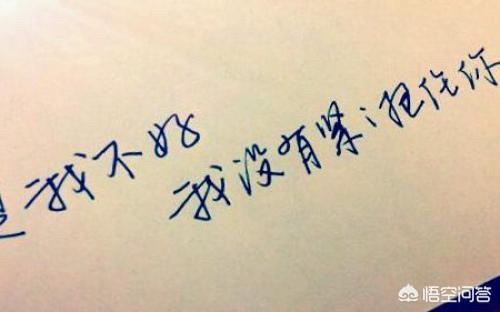 是我不好
我没有紧;抱住你
悟空问答